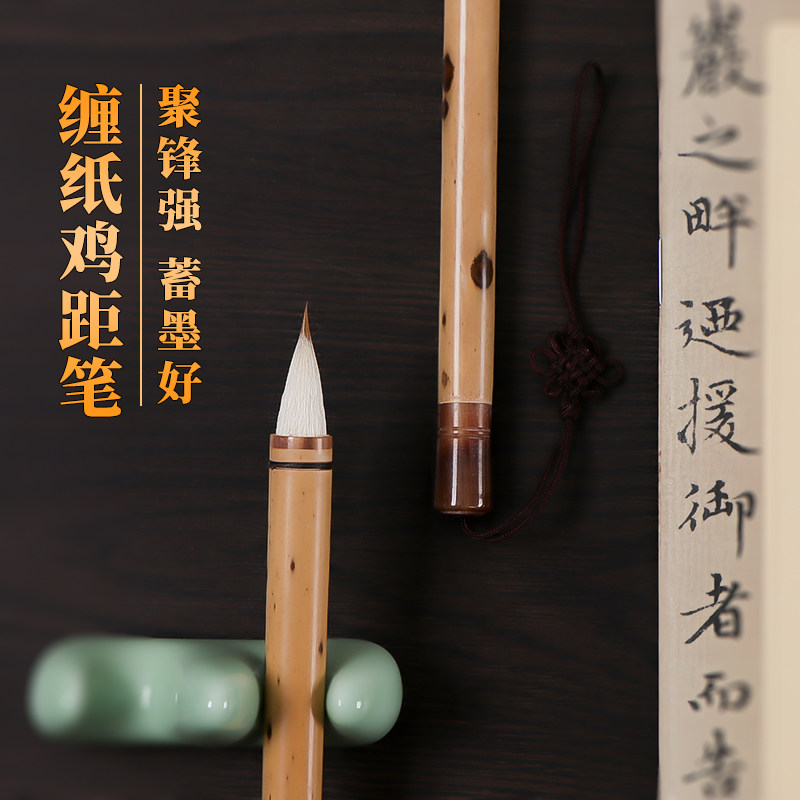 缠纸鸡距笔
聚锋强 蓄墨好
巖之畔迺援御者而告